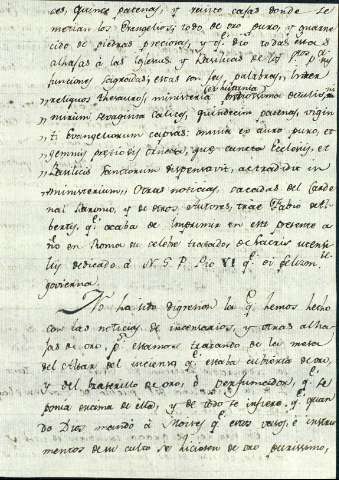 ces, quince patenas, y veinte cajas donde se
metian los Evangelios, todo de oro puro, y guarne
cido de piedras preciosas, y q.e dio todas estas
alhajas à las Iglesias y Basilicas de los
funciones sagradas, estas son sus palabras: Inter
"reliquos thesauros, ministeria
"mirum sexaginta calices, quindecim patenas, vigin
"ti Evangeliorum capsas: omnia ex auro puro, et
"gemmis pretiosis que cuncta Ecclesiis, et
"Basilicis Sanctorum dispensavit, ac tradidit in
"ministerium. Otras noticias, sacadas del Carde
nal Baronio, y de otros Autores, trae Fabio de Al
bertis, q.e acaba de imprimir en este presente a
ño en Roma su celebre tratado, de Sacris utensi
liis dedicado à N. S. P. Pio VI q.e oi felizm.te
govierna.
No ha sido digresion la q.e hemos hecho
con las noticias de incensarios, y otras alha
jas de oro, p.s estamos tratando de la mesa
del Altar del incienso q.e estaba cubierta de oro,
y del braserillo de oro, ò perfumador, q.e se
ponia encima de ella, y de todo se infiere q.e quan
do Dios mandò à Moises q.e estos vasos, è instru
mentos de su culto se hiciesen de oro purissimo,